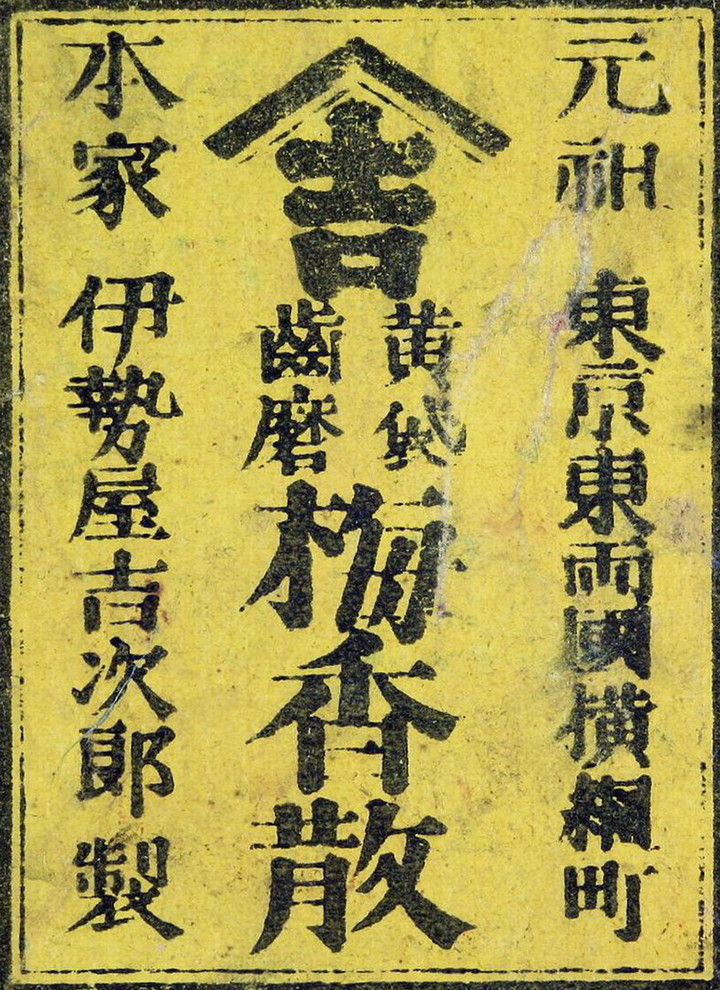 元祖 東京東両國横網町
吉
黄袋
齒磨
梅香散
本家 伊勢屋吉次郎製